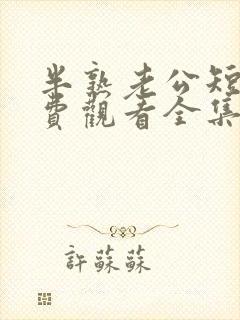 半熟老公短
費觀看全集
許蘇蘇